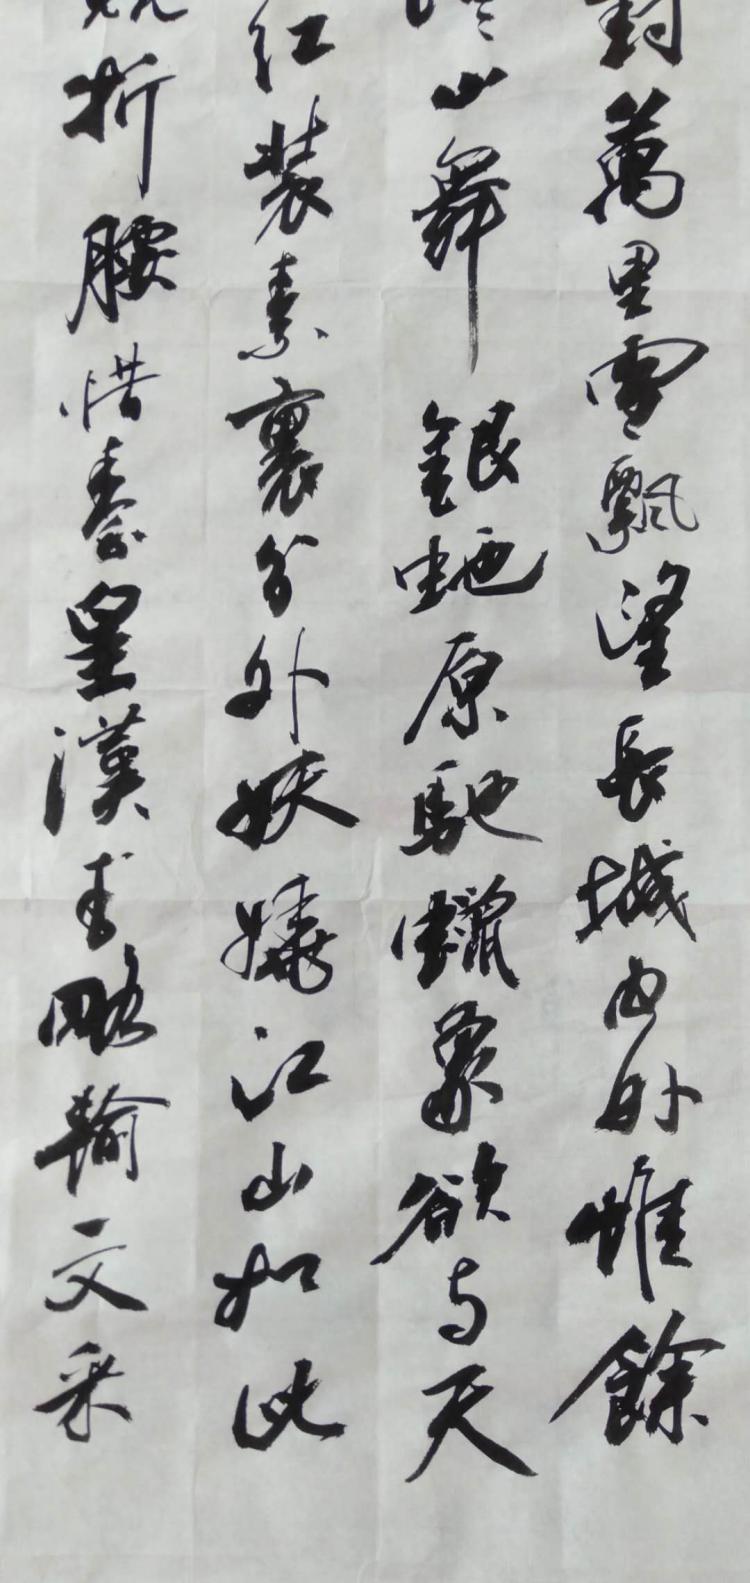 封萬里雪飄望長城内外惟餘
山舞銀蛇原馳蠟象欲与天
红装素裹分外妖嬈江山如此
折腰惜秦皇漢武略輸文采